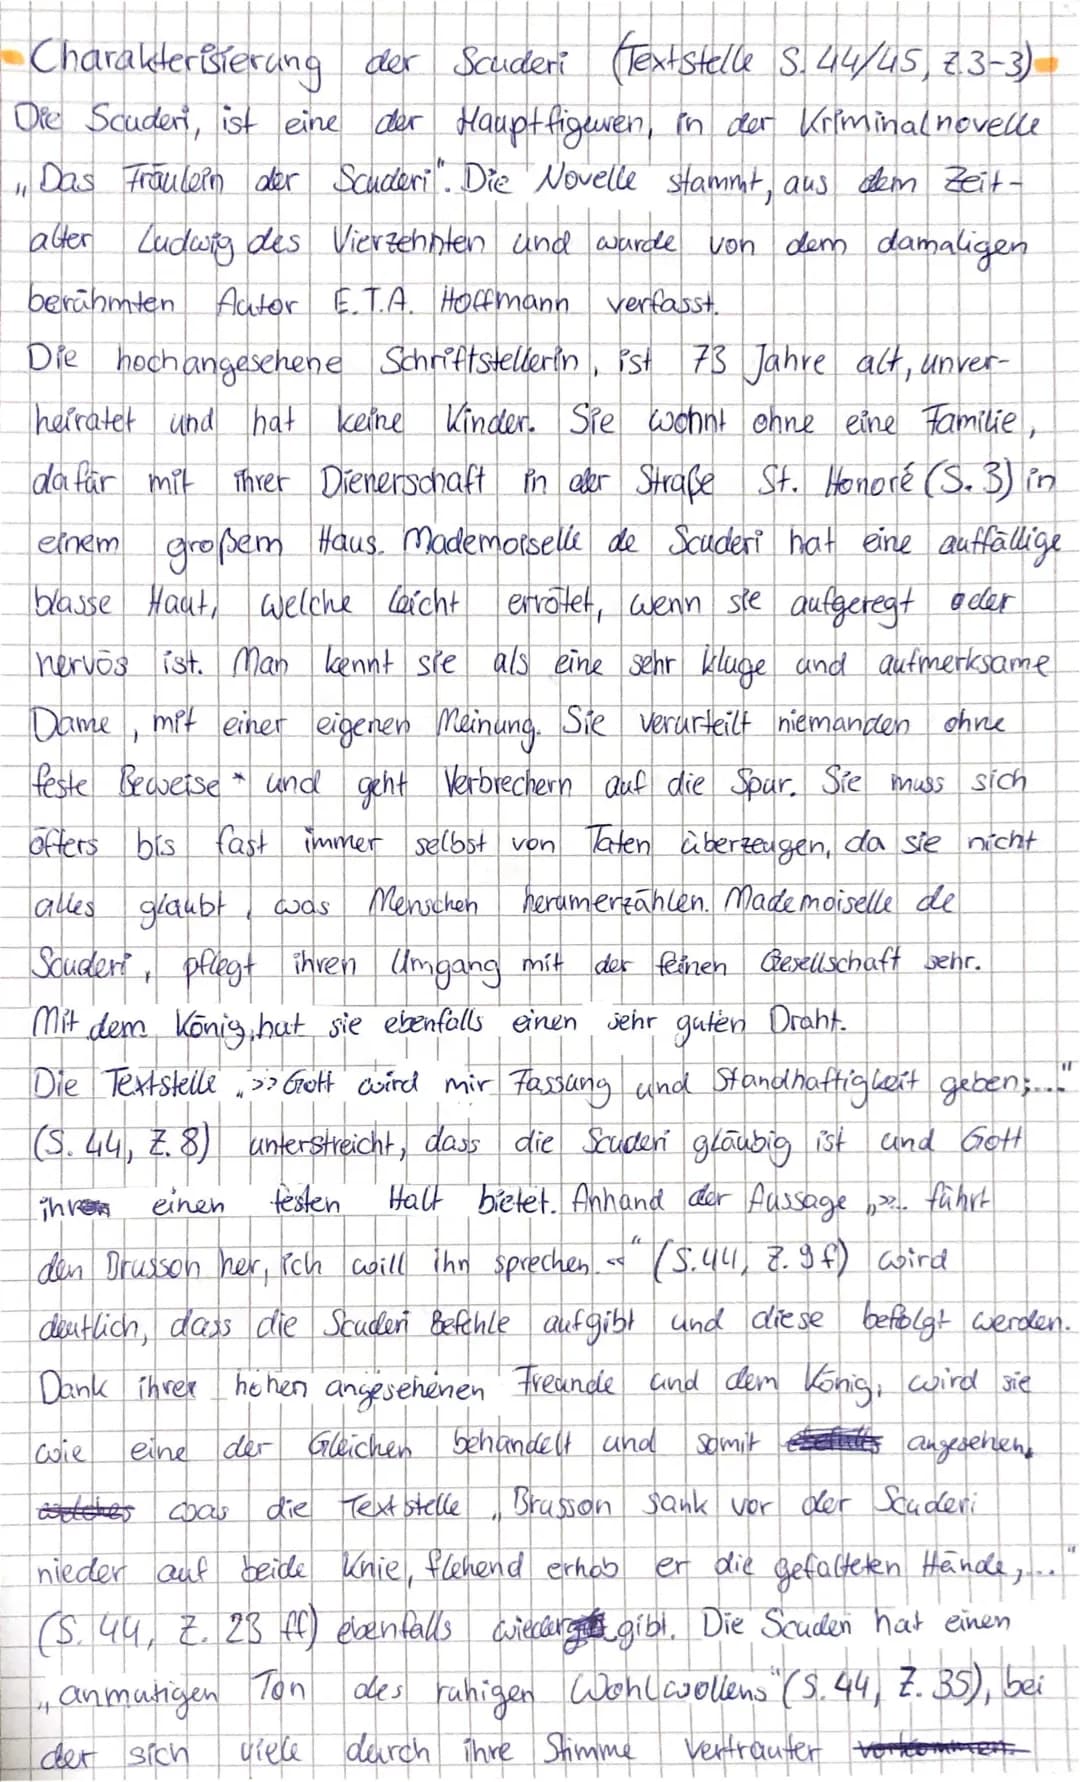 Charakterisierung der Scuderi (Textstelle S. 44/45, Z.3-3)
Die Scuderi, ist eine der Hauptfiguren, in der Kriminalnovelle
„Das Fräulein der Scuderi". Die Novelle stammt, aus dem Zeit-
alter Ludwig des Vierzehnten und wurde von dem damaligen
berühmten Autor E.T.A. Hoffmann verfasst.
Die hochangesehene Schriftstellerin, ist 73 Jahre alt, unver-
heiratet und hat keine Kinder. Sie wohnt ohne eine Familie,
dafür mit ihrer Dienerschaft in der Straße St. Honoré (S. 3) in
einem großem Haus. Mademoiselle de Scuderi hat eine auffällige
blasse Haut, welche leicht errötet, wenn sie aufgeregt oder
nervös ist. Man kennt sie als eine sehr kluge und aufmerksame
Dame, mit einer eigenen Meinung. Sie verurteilt niemanden ohne
feste Beweise * und geht Verbrechern auf die Spur. Sie muss sich
öfters bis fast immer selbst von Taten überzeugen, da sie nicht
alles glaubt, was Menschen herumerzählen. Mademoiselle de
Scuderi, pflegt ihren Umgang mit der feinen Gesellschaft sehr.
Mit dem König, hat sie ebenfalls einen sehr guten Draht.
Die Textstelle „>> Gott wird mir Fassung und Standhaftigkeit geben;..."
(S. 44, Z. 8) unterstreicht, dass die Scuderi gläubig ist und Gott
ihr einen festen Halt bietet. Anhand der Aussage „>>... führt
den Brusson her, ich will ihn sprechen.<<" (S.44, Z. 9 f) wird
deutlich, dass die Scuderi Befehle aufgibt und diese befolgt werden.
Dank ihrer hohen angesehenen Freunde und dem König, wird sie
wie eine der Gleichen behandelt und somit angesehen,
welches was die Textstelle „Brusson sank vor der Scuderi
nieder auf beide Knie, flehend erhob er die gefalteten Hände,..."
(S. 44, Z. 23 ff) ebenfalls wiedergibt. Die Scuderi hat einen
„anmutigen Ton des ruhigen Wohlwollens" (S. 44, Z. 35), bei
der sich viele durch ihre Stimme vertrauter vorkommen.